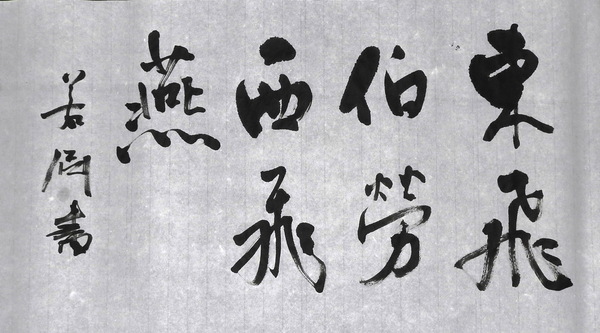 東飛
伯勞
西飛
燕
若
書